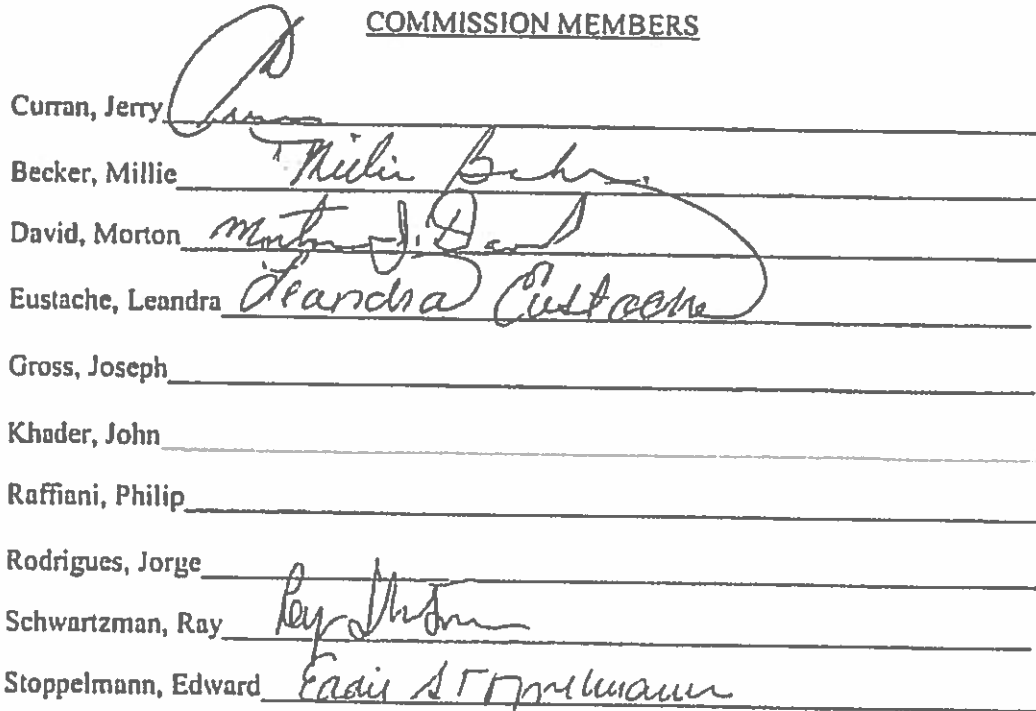 COMMISSION MEMBERS
Curran, Jerry Curran
Becker, Millie Millie Becker
David, Morton Morton J. David
Eustache, Leandra Leandra Eustache
Gross, Joseph
Khader, John
Raffiani, Philip
Rodrigues, Jorge
Schwartzman, Ray Ray
Stoppelmann, Edward Eddie Stoppelmann